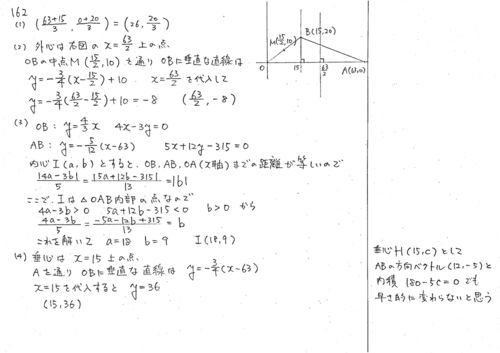 162
(1) (63+15/3, 0+20/3) = (26, 20/3)
(2) 外心は右図の x=63/2 上の点.
OBの中点M(15/2,10)を通り OBに垂直な直線は
y=-3/4(x-15/2)+10 x=63/2 を代入して
y=-3/4(63/2-15/2)+10=-8 (63/2,-8)
(3) OB: y=4/3x 4x-3y=0
AB: y=-5/12(x-63) 5x+12y-315=0
内心I(a,b)とすると、OB,AB,OA(x軸)までの距離が等しいので
|4a-3b|/5=|5a+12b-315|/13=|b|
ここで、Iは△OAB内部の点なので
4a-3b>0 5a+12b-315<0 b>0 から
4a-3b/5=-5a-12b+315/13=b
これを解いて a=18 b=9 I(18,9)
(4) 垂心は x=15 上の点.
Aを通り OBに垂直な直線は y=-3/4(x-63)
x=15を代入すると y=36
(15,36)
B(15,20)
M(15/2,10)
0
15
63/2
A(63,0)
垂心H(15,c)として
ABの方向ベクトル(12,-5)と
内積 180-5c=0 でも
早さ的に変わらないと思う